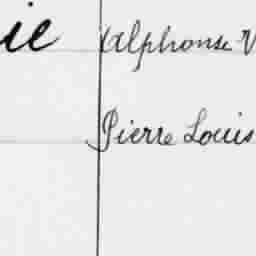 ie Alphonse V
Pierre Louis